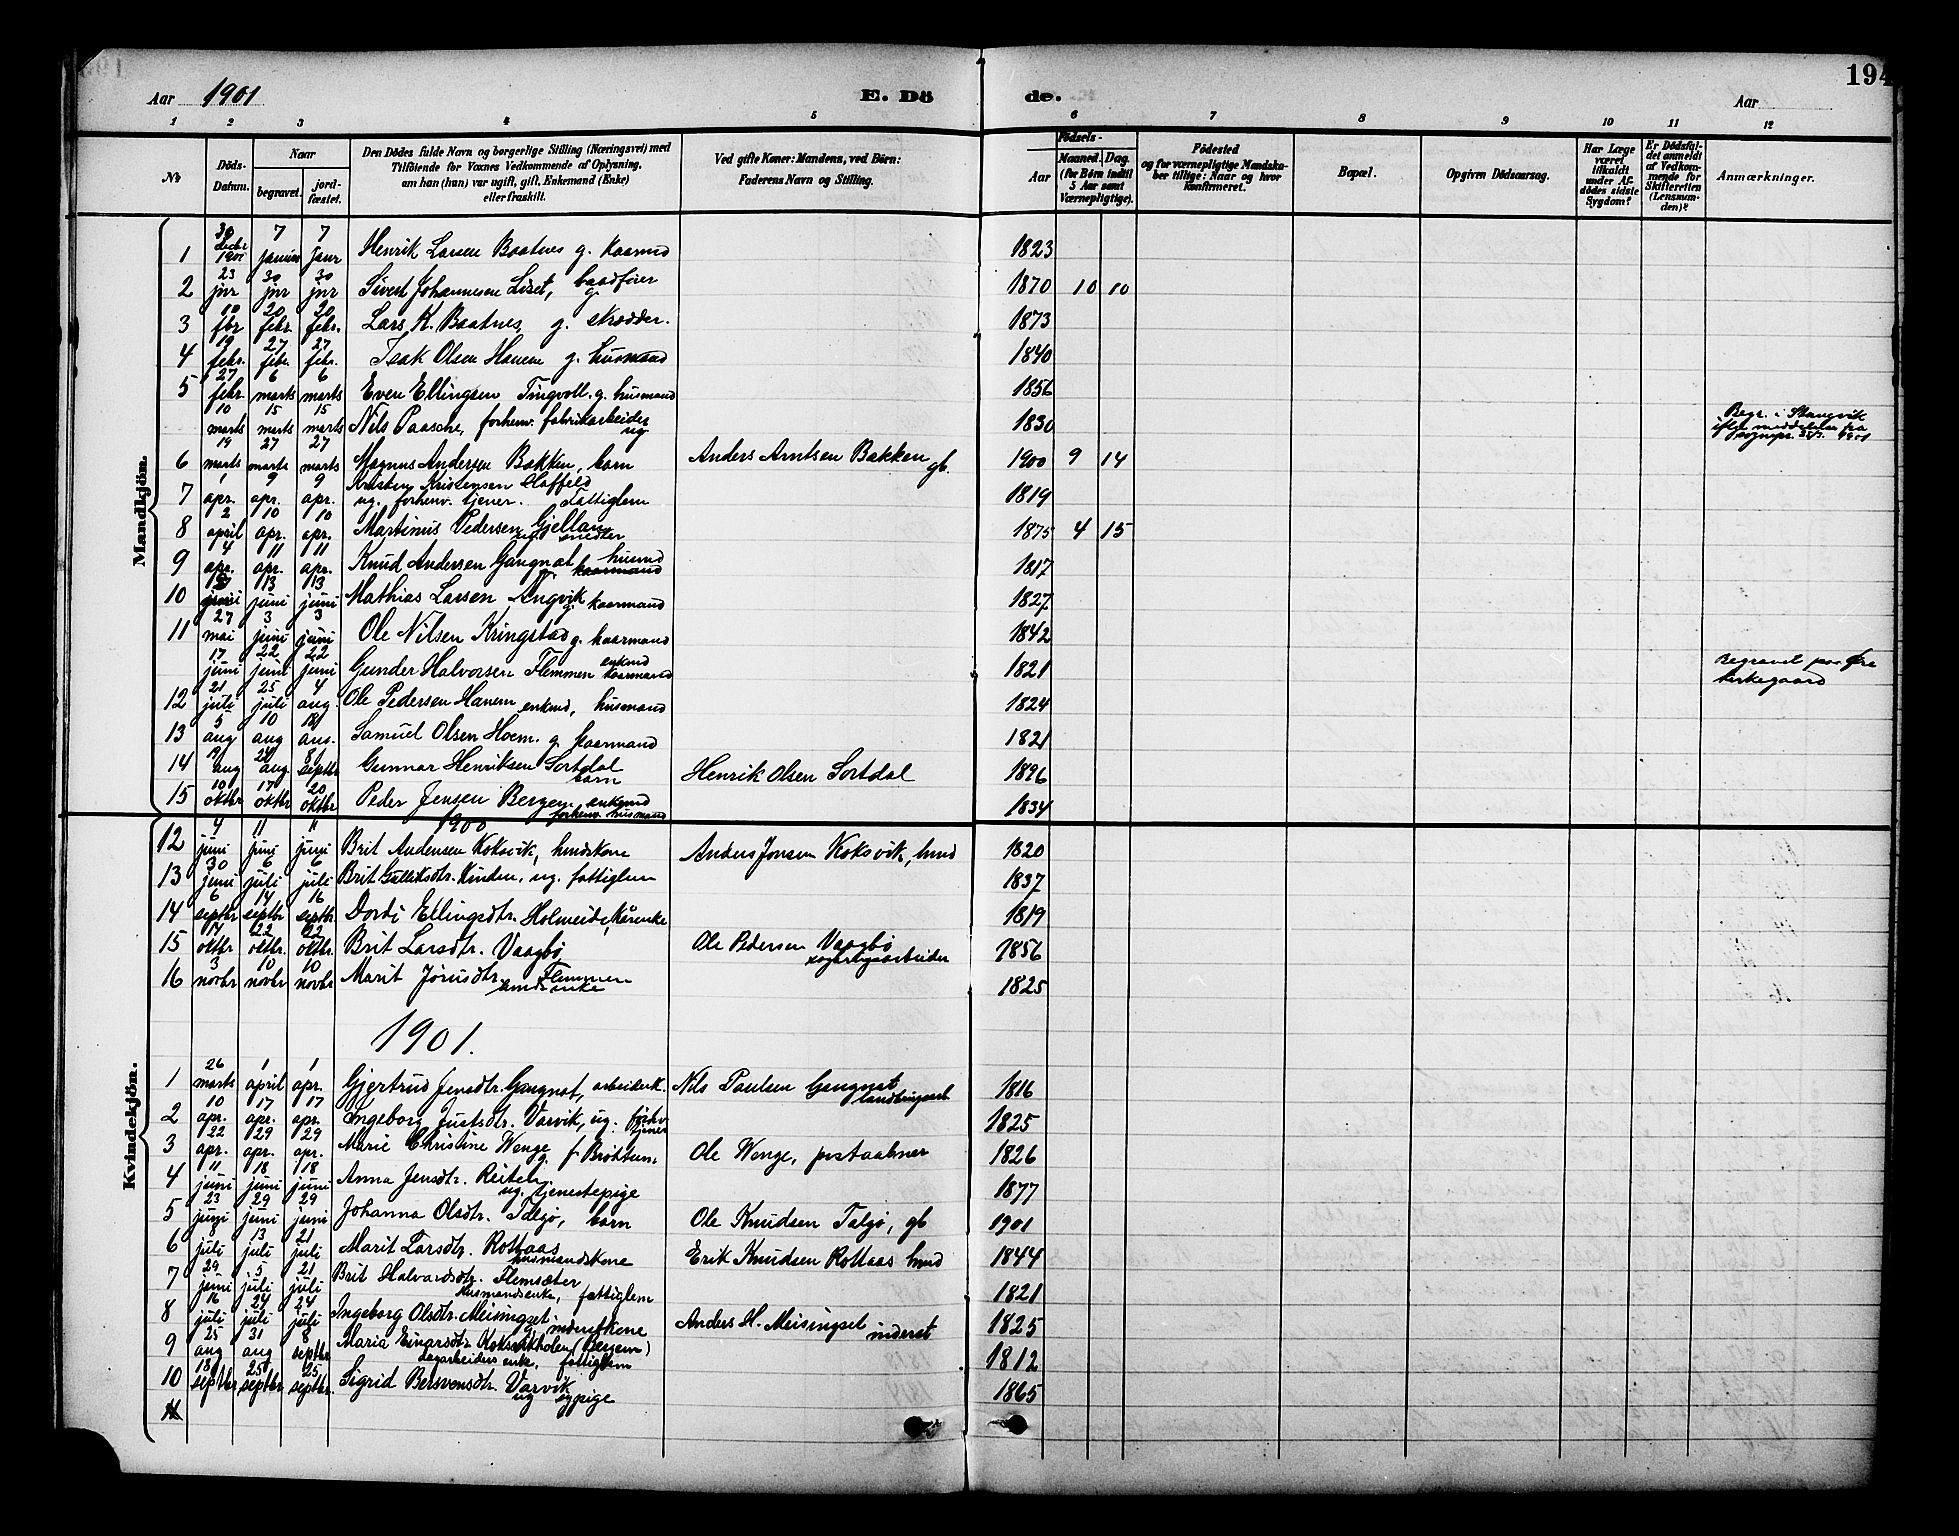 194
Aar 1901 E. Dö de. Aar
1 2 3 4 5 6 7 8 9 10 11 12
No
Döds-Datum.
Naar
begravet.
jord-fæstet.
Den Dödes fulde Navn og borgerlige Stilling (Næringsvei) med
Tilföiende for Voxnes Vedkommende af Oplysning,
om han (hun) var ugift, gift, Enkemand (Enke)
eller fraskilt.
Ved gifte Koner: Mandens, ved Börn:
Faderens Navn og Stilling.
Födsels-
Aar
Maaned. Dag.
(for Börn indtil
5 Aar samt
Værnepligtige).
Födested
og for værnepligtige Mandska-
ber tillige: Naar og hvor
konfirmeret.
Bopæl.
Opgiven Dödsaarsag.
Har Læge
været
tilkaldt
under Af-
dödes sidste
Sygdom?
Er Dödsfal-
det anmeldt
af Vedkom-
mende for
Skifteretten
(Lensman-
den)?
Anmærkninger.
Mandkjön.
1 30 Decbr 1901 7 januar 7 Janr Henrik Larsen Baatnes g. kaarmd 1823
2 23 jnr 30 jnr 30 jnr Sivert Johannesen Liset, baadfører g. 1870 10 10
3 10 fbr 20 febr. 20 febr. Lars K. Baatnes, g. skrædder. 1873
4 19 febr. 27 febr. 27 febr. Isak Olsen Hanem g. husmand 1840
5 27 febr. 6 marts 6 marts Even Ellingsen Tingvoll. g. husmand 1856
10 marts 15 marts 15 marts Nils Paasche, forhenv. fabrikarbeider ug 1830 Begr. i Stangvik
6 19 marts 27 marts 27 marts Magnus Andersen Bakken, barn Anders Arntsen Bakken gb. 1900 9 14
7 1 apr. 9 apr. 9 apr. Kristen Kristensen
ug. forhenv. tjener. Fattiglem 1819
8 2 april 10 apr. 10 apr. Martinus Pedersen 1875 4 15
9 4 apr. 11 apr. 11 apr. Knud Andersen Gangnat husmd kaarmand 1817
10 juni 13 juni 13 juni Mathias Larsen Angvik g. kaarmand 1827
11 27 mai 3 juni 3 juni Ole Nilsen Kringstad g. kaarmand 1842
17 juni 22 juni 22 juni Gunder Halvorsen Flemmen enkmd kaarmand 1821 Begravet paa Øre kirkegaard
12 21 juli 25 juli 4 aug. Ole Pedersen Hanem enkmd, husmand 1824
13 5 aug 10 aug 18 aug. Samuel Olsen Hoem. g. kaarmand 1821
14 19 aug 24 aug. 8 septbr Gunnar Henriksen Sortdal barn Henrik Olsen Sortdal 1896
15 10 oktbr 17 oktbr 20 oktbr Peder Jensen Bergem enkmd forhenv. husmand 1834
Kvindekjön.
1900
12 4 juni 11 juni 11 juni Brit Andersen Koksvik, hmdskone Anders Jonsen Koksvik, hmd 1820
13 30 juni 6 juli 6 juli Brit Gulliksdtr. Kinden, ug. fattiglem 1837
14 6 septbr 14 septbr 16 septbr Dordi Ellingsdtr. Holmeide, Kårenke 1819
15 14 oktbr 22 oktbr. 22 oktbr. Brit Larsdtr. Vaagbø Ole Pedersen Vaagbø 1856
16 3 novbr 10 novbr 10 novbr Marit Jonusdtr. Flemmen enke 1825
1901.
1 26 marts 1 april 1 apr. Gjertrud Jensdtr. Gangnat, arbeiderk. Nils Paulsen Gangnat 1816
2 10 apr. 17 apr. 17 apr. Ingeborg Justsdtr. Varvik, ug. forhv tjener 1825
3 22 apr. 29 apr. 29 apr. Marie Christine Wenge g f. Brøttum. Ole Wenge, postaabner 1826
4 11 juni 18 juni 18 juni Anna Jensdtr. Reiten ug. tjenestepige 1877
5 23 juni 29 juni 29 juni Johanna Olsdtr. Talgø, barn Ole Knudsen Talgø, gb 1901
6 8 juli 13 juli 21 juli Marit Larsdtr. Rottaas husmandskone Erik Knudsen Rottaas hmd 1844
7 29 juni 5 juli 21 juli Brit Halvardsdtr. Flemsæter husmandsenke, fattiglem 1821
8 16 juli 24 juli 24 juli Ingeborg Olsdtr. Meisingset g inderstkone Anders H. Meisingset inderst 1825
9 25 aug 31 aug 8 septbr Maria Einarsdtr. (Bergem) dagarbeiders enke, fattiglem 1812
10 18 septbr 25 septbr 25 septbr. Sigrid Bersvensdtr. Varvik ug sypige 1865
11